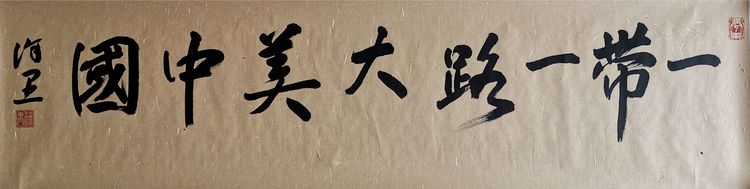 一带一路大美中國